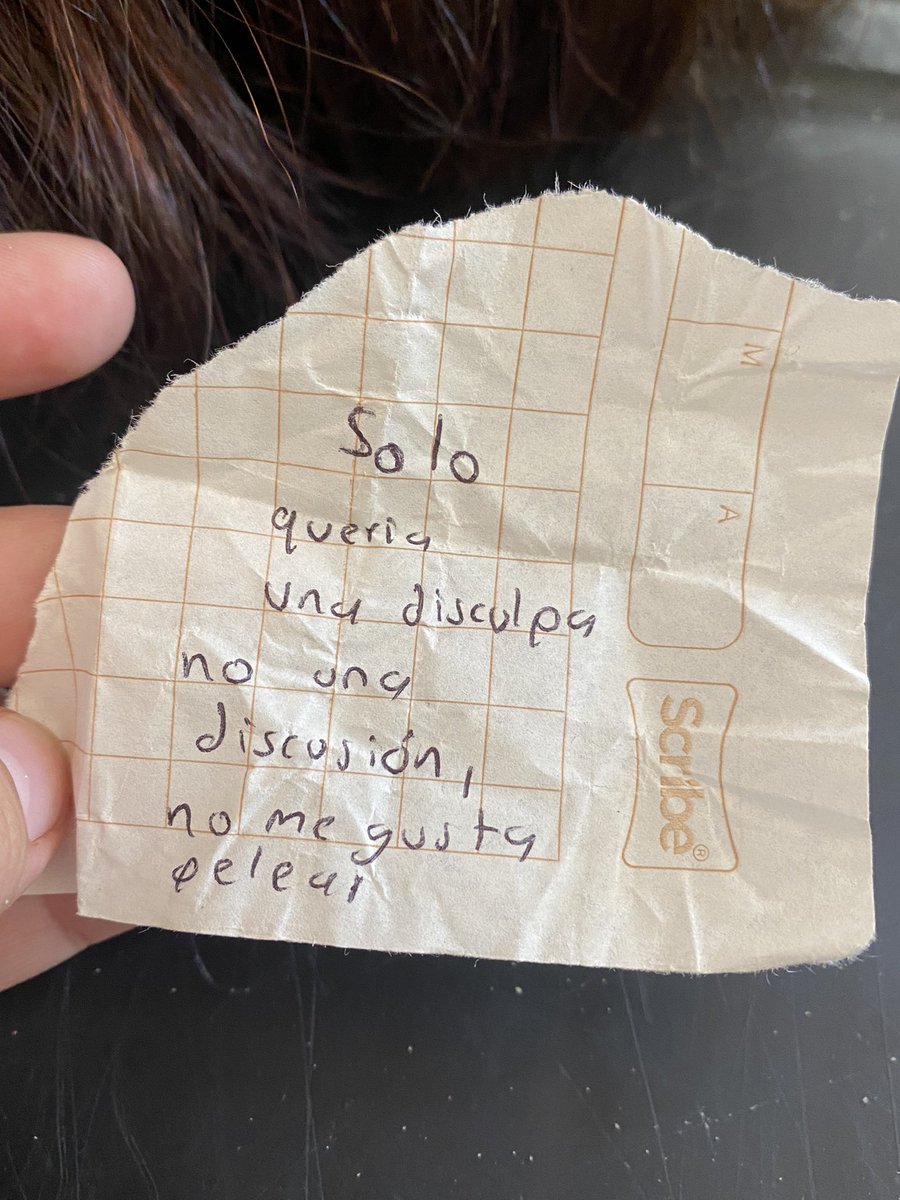 Solo
queria
una disculpa
no una
discusión,
no me gusta
pelear
M
A
Scribe®